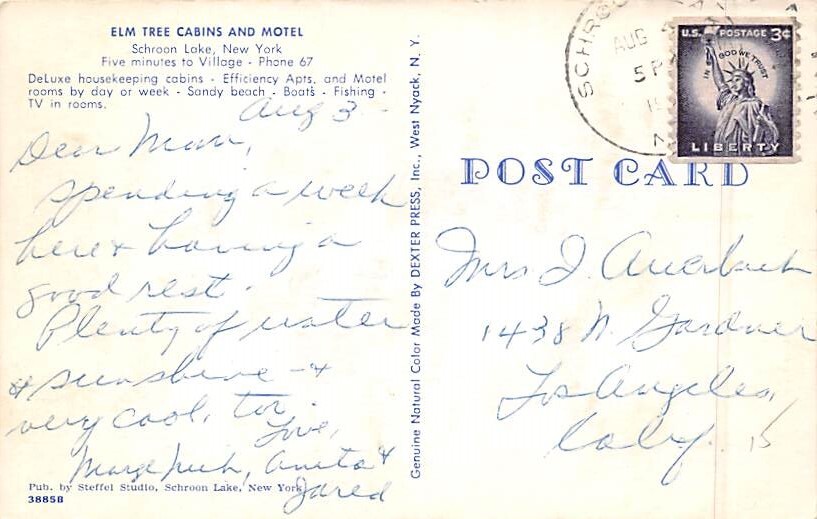 ELM TREE CABINS AND MOTEL
Schroon Lake, New York
Five minutes to Village - Phone 67
DeLuxe housekeeping cabins - Efficiency Apts. and Motel
rooms by day or week - Sandy beach - Boats - Fishing -
TV in rooms.
Aug 3 -
Dear Mom,
Spending a week
here & having a
good rest.
Plenty of water
& sunshine - &
very cool, too.
Love,
Marge, Anita &
Jared
Pub. by Steffel Studio, Schroon Lake, New York
38858
Genuine Natural Color Made By DEXTER PRESS, Inc., West Nyack, N. Y.
SCHROO
AUG
5 P
19
N
U.S. POSTAGE 3¢
IN GOD WE TRUST
LIBERTY
POST CARD
Mrs J. Auerbach
1438 N. Gardner
Los Angeles,
Calif. 15